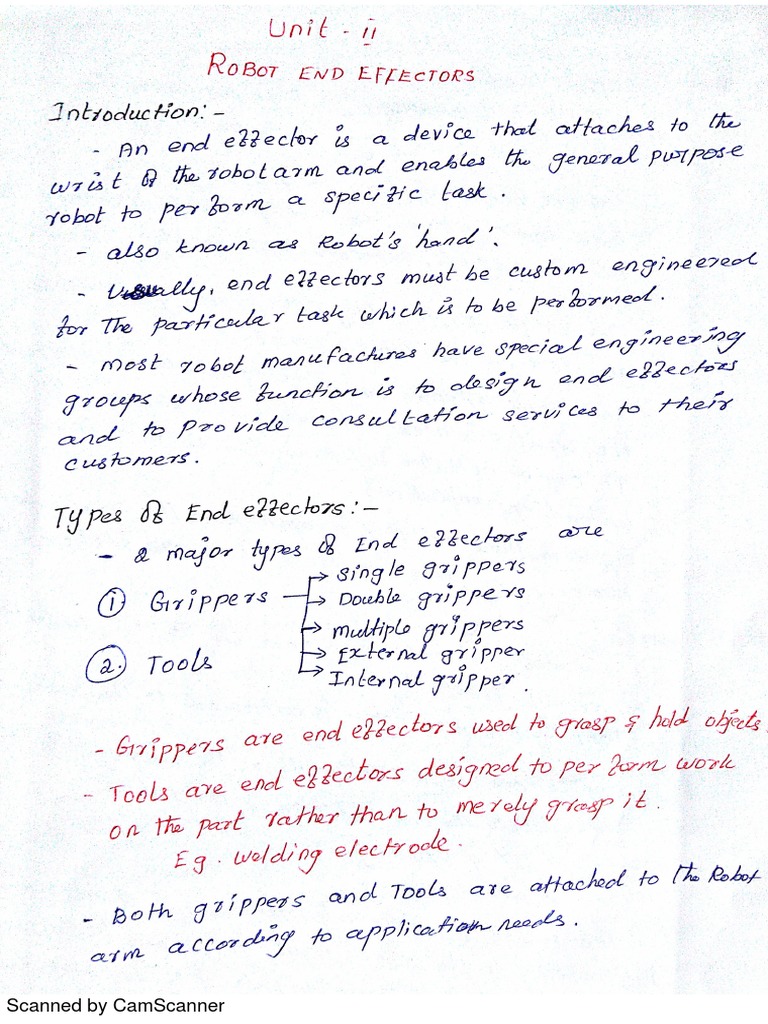 Unit - ii
ROBOT END EFFECTORS
Introduction:-
- An end effector is a device that attaches to the
wrist of the robot arm and enables the general purpose
robot to perform a specific task.
- also known as Robot's 'hand'.
- Usually, end effectors must be custom engineered
for The particular task which is to be performed.
- most robot manufactures have special engineering
groups whose function is to design end effectors
and to provide consultation services to their
customers.
Types of End effectors:-
- 2 major types of End effectors are
① Grippers → Single grippers
→ Double grippers
→ multiple grippers
② Tools → External gripper
→ Internal gripper.
- Grippers are end effectors used to grasp & hold objects.
- Tools are end effectors designed to perform work
on the part rather than to merely grasp it.
Eg. welding electrode.
- Both grippers and Tools are attached to the Robot
arm according to application needs.
Scanned by CamScanner